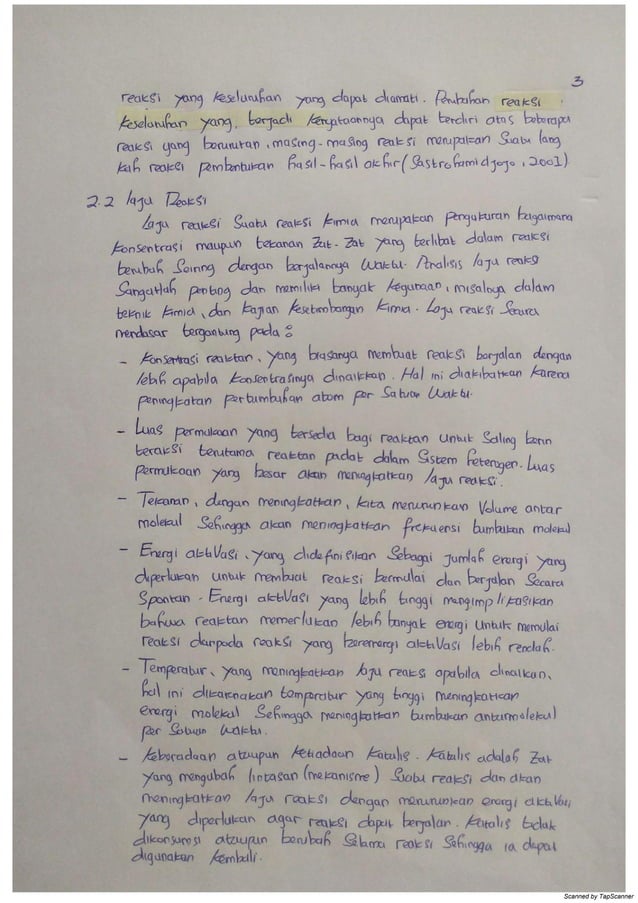 3
reaksi yang keseluruhan yang dapat diamati. Perubahan reaksi
keseluruhan yang, terjadi kenyataannya dapat terdiri atas beberapa
reaksi yang berurutan, masing-masing reaksi merupakan suatu lang
kah reaksi pembentukan hasil-hasil akhir (Sastrohamidjojo, 2001)
2.2 laju Reaksi
laju reaksi suatu reaksi kimia merupakan pengukuran bagaimana
konsentrasi maupun tekanan zat-zat yang terlibat dalam reaksi
berubah Seiring dengan berjalannya waktu. Analisis laju reaksi
Sangatlah penting dan memiliki banyak kegunaan, misalnya dalam
teknik kimia, dan kajian kesetimbangan kimia. Laju reaksi Secara
mendasar tergantung pada :
- konsentrasi reaktan, yang biasanya membuat reaksi berjalan dengan
lebih apabila konsentrasinya dinaikkan. Hal ini diakibatkan karena
peningkatan pertumbuhan atom per Satuan Waktu.
- Luas permukaan yang tersedia bagi reaktan untuk Saling berin
teraksi terutama reaktan padat dalam Sistem heterogen. Luas
permukaan yang besar akan meningkatkan laju reaksi.
- Tekanan, dengan meningkatkan, kita menurunkan Volume antar
molekul Sehingga akan meningkatkan frekuensi tumbukan molekul
- Energi aktivasi, yang didefinisikan Sebagai jumlah energi yang
diperlukan untuk membuat reaksi bermulai dan berjalan Secara
Spontan. Energi aktivasi yang lebih tinggi mengimplikasikan
bahwa reaktan memerlukan lebih banyak energi Untuk memulai
reaksi daripada reaksi yang berenergi aktivasi lebih rendah.
- Temperatur, yang meningkatkan laju reaksi apabila dinaikan,
hal ini dikarenakan temperatur yang tinggi meningkatkan
energi molekul Sehingga meningkatkan tumbukan antarmolekul
per Satuan Waktu.
- Keberadaan ataupun ketiadaan Katalis. Katalis adalah Zat
yang mengubah lintasan (mekanisme) Suatu reaksi dan akan
meningkatkan laju reaksi dengan menurunkan energi aktivasi
yang diperlukan agar reaksi dapat berjalan. Katalis tidak
dikonsumsi ataupun berubah Selama reaksi Sehingga ia dapat
digunakan kembali.
Scanned by TapScanner